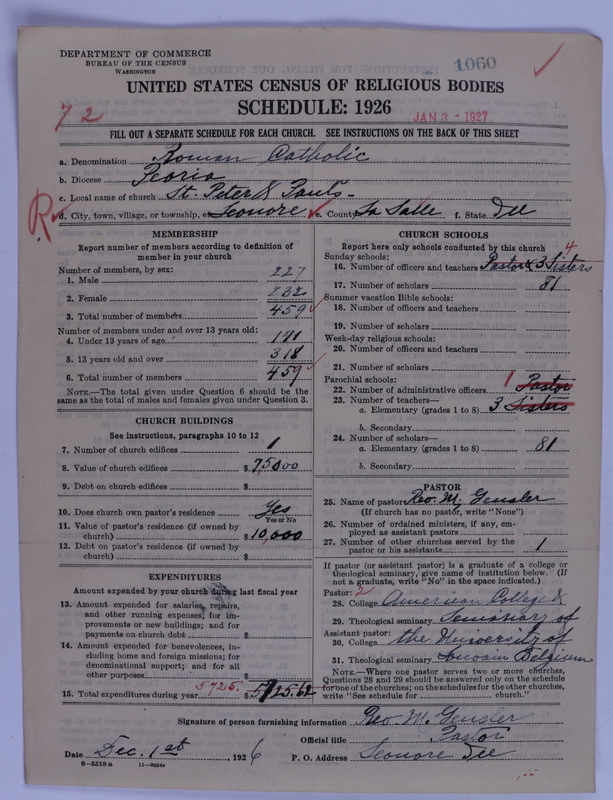 DEPARTMENT OF COMMERCE
BUREAU OF THE CENSUS
WASHINGTON
1060
UNITED STATES CENSUS OF RELIGIOUS BODIES
SCHEDULE: 1926
72
JAN 3 - 1927
FILL OUT A SEPARATE SCHEDULE FOR EACH CHURCH. SEE INSTRUCTIONS ON THE BACK OF THIS SHEET
a. Denomination Roman Catholic
b. Diocese Peoria
c. Local name of church St. Peter & Paul's
R
d. City, town, village, or township, etc. Leonore e. County La Salle f. State Ill
MEMBERSHIP
Report number of members according to definition of member in your church
Number of members, by sex:
1. Male 227
2. Female 232
3. Total number of members 459
Number of members under and over 13 years old:
4. Under 13 years of age 141
5. 13 years old and over 318
6. Total number of members 459
NOTE.—The total given under Question 6 should be the same as the total of males and females given under Question 3.
CHURCH BUILDINGS
See instructions, paragraphs 10 to 12
7. Number of church edifices 1
8. Value of church edifices $ 75,000
9. Debt on church edifices $
10. Does church own pastor's residence? Yes
Yes or No
11. Value of pastor's residence (if owned by church) $ 10,000
12. Debt on pastor's residence (if owned by church) $
EXPENDITURES
Amount expended by your church during last fiscal year
13. Amount expended for salaries, repairs, and other running expenses; for improvements or new buildings; and for payments on church debt $
14. Amount expended for benevolences, including home and foreign missions; for denominational support; and for all other purposes $
15. Total expenditures during year 5725. $ 5725.62
CHURCH SCHOOLS
Report here only schools conducted by this church
Sunday schools:
4
16. Number of officers and teachers Pastor & 3 Sisters
17. Number of scholars 81
Summer vacation Bible schools:
18. Number of officers and teachers
19. Number of scholars
Week-day religious schools:
20. Number of officers and teachers
21. Number of scholars
Parochial schools:
22. Number of administrative officers 1 Pastor
23. Number of teachers—
a. Elementary (grades 1 to 8) 3 Sisters
b. Secondary
24. Number of scholars—
a. Elementary (grades 1 to 8) 81
b. Secondary
PASTOR
25. Name of pastor Rev. M. Gensler
(If church has no pastor, write "None")
26. Number of ordained ministers, if any, employed as assistant pastors
27. Number of other churches served by the pastor or his assistants 1
If pastor (or assistant pastor) is a graduate of a college or theological seminary, give name of institution below. (If not a graduate, write "No" in the space indicated.)
Pastor: 2
28. College American College &
29. Theological seminary Seminary of
Assistant pastor:
30. College the University of
31. Theological seminary Louvain Belgium
NOTE.—Where one pastor serves two or more churches, Questions 28 and 29 should be answered only on the schedule for one of the churches; on the schedules for the other churches, write "See schedule for church."
Signature of person furnishing information Rev. M. Gensler
Official title Pastor
Date Dec. 1st, 1926 P. O. Address Leonore Ill
8-5518a